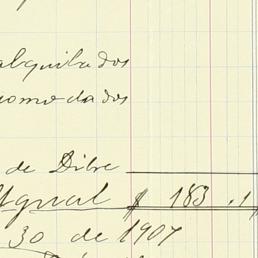 alquilados
comodados
de Dibre
Igual $ 183.1
30 de 1907